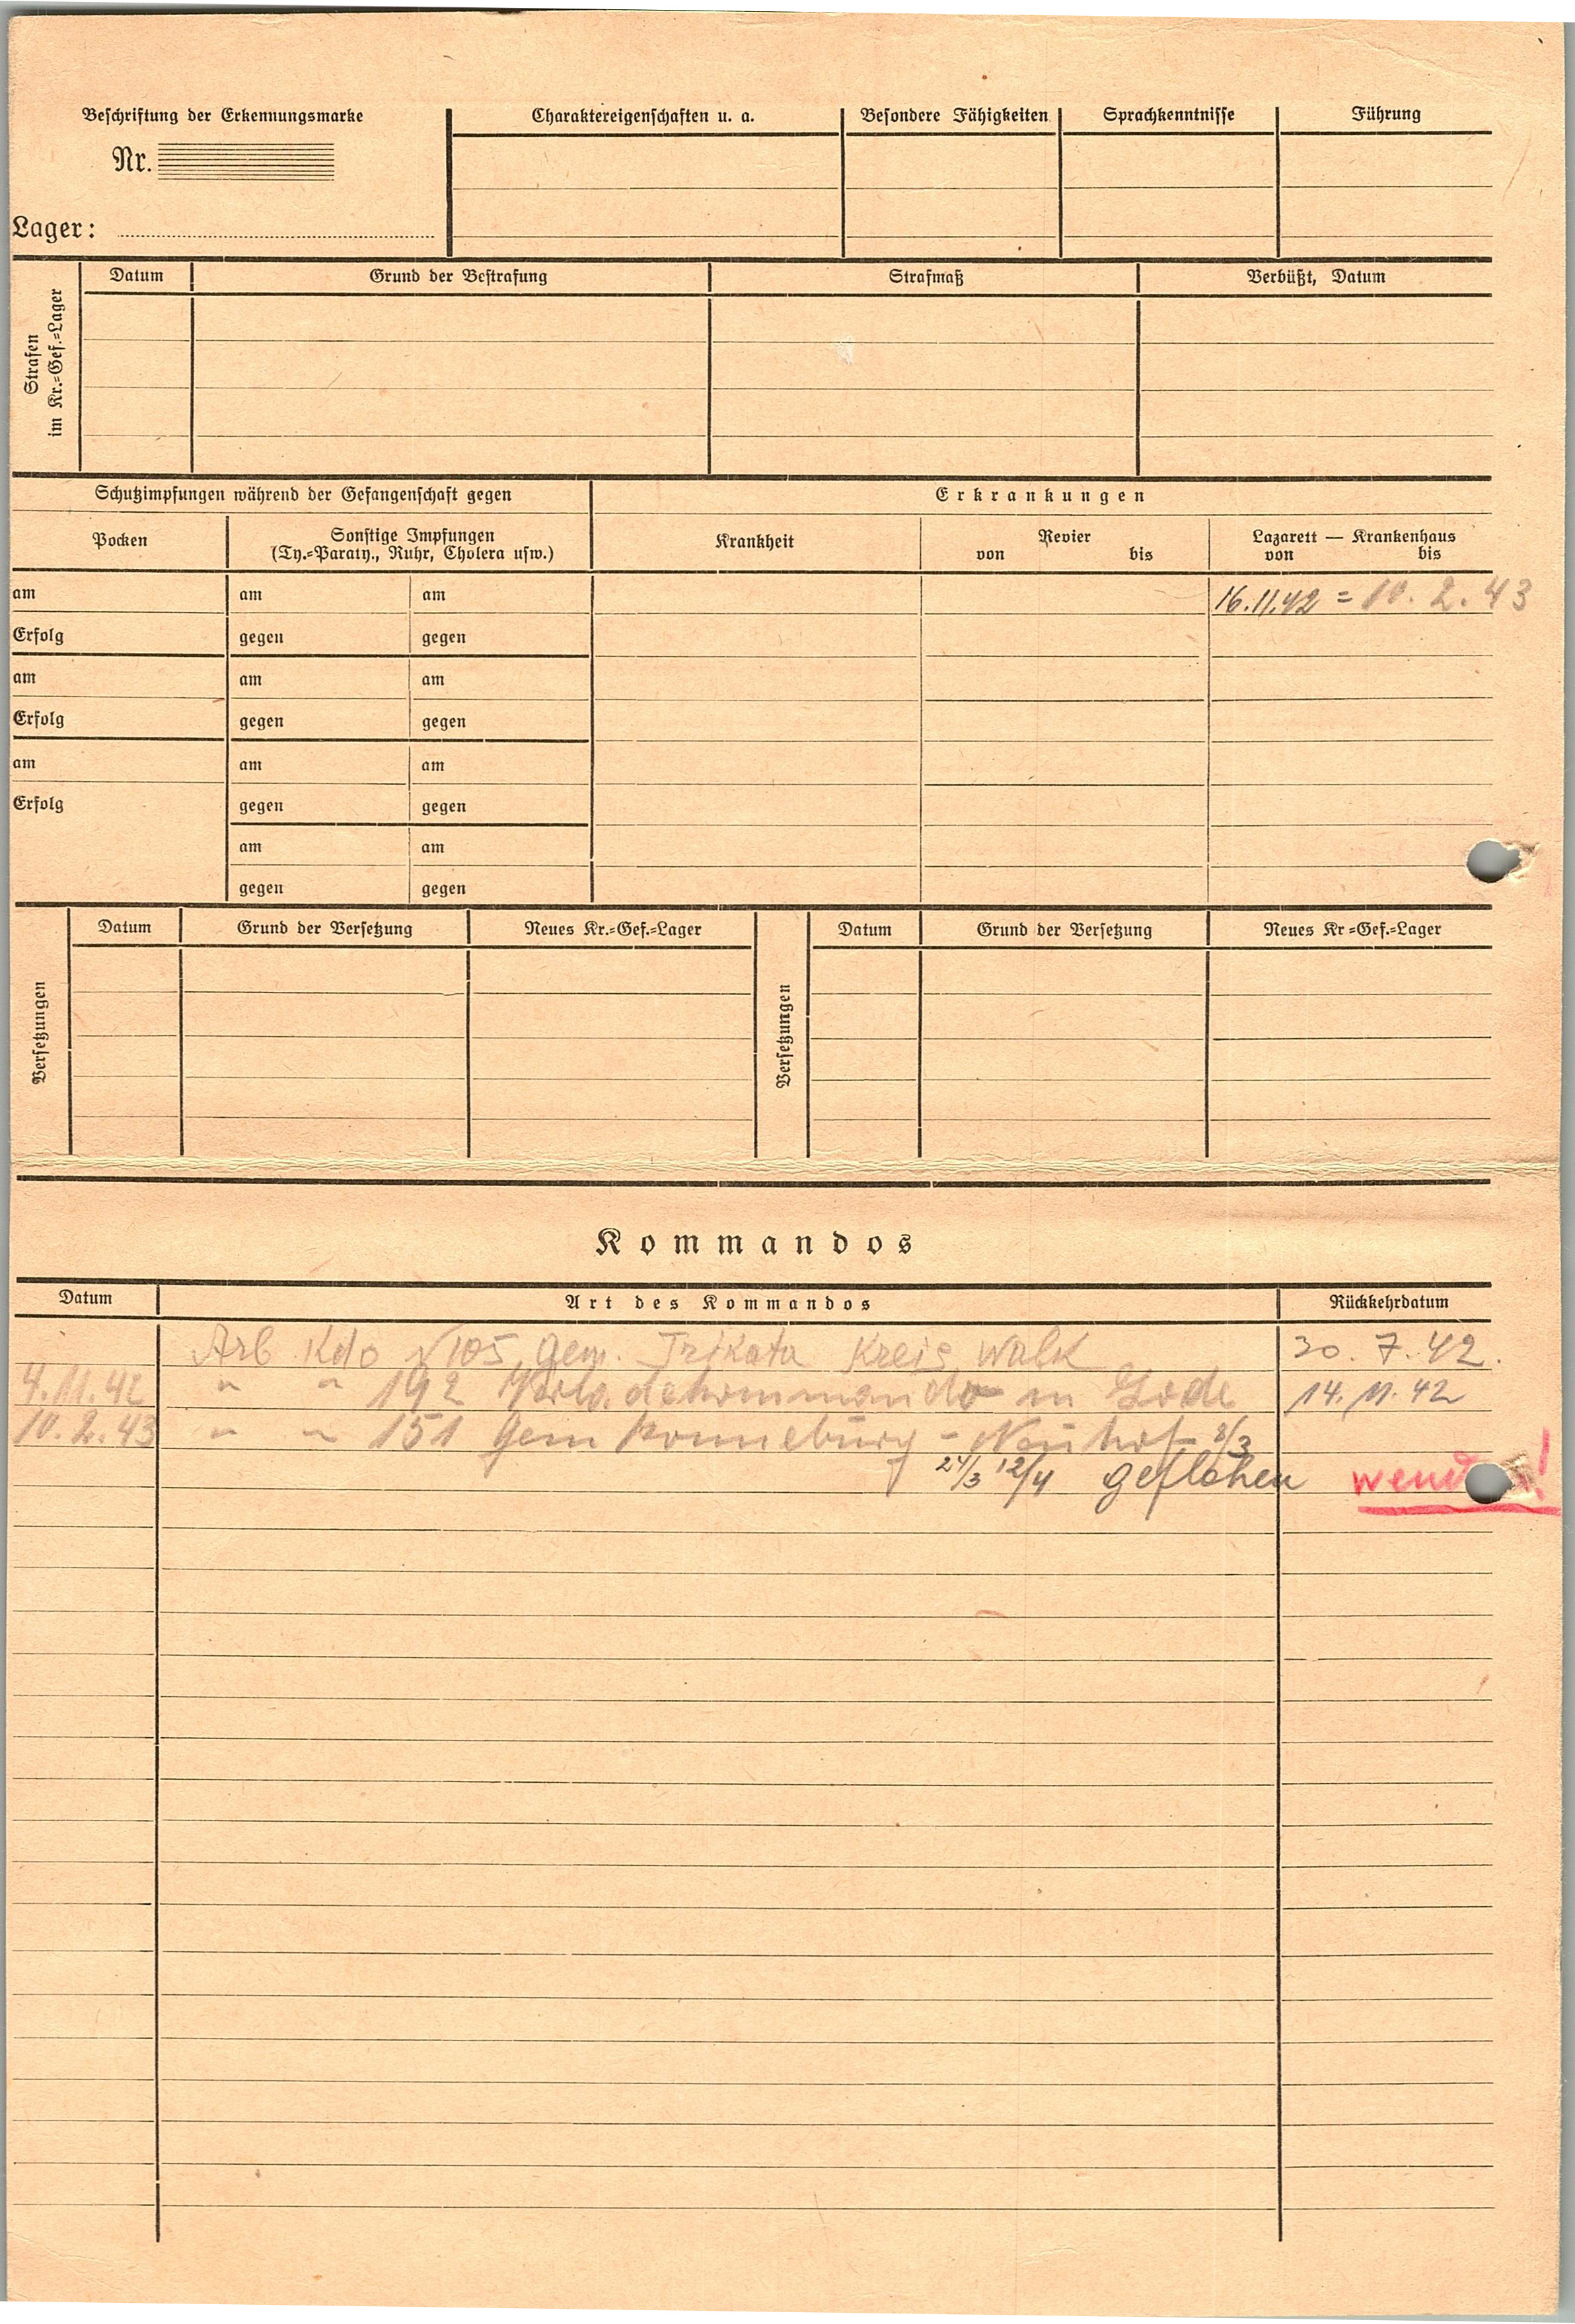 Beschriftung der Erkennungsmarke
Nr.
Lager:
Charaktereigenschaften u. a.
Besondere Fähigkeiten
Sprachkenntnisse
Führung
Strafen
im Kr.=Gef.=Lager
Datum
Grund der Bestrafung
Strafmaß
Verbüßt, Datum
Schutzimpfungen während der Gefangenschaft gegen
Erkrankungen
Pocken
Sonstige Impfungen
(Ty.=Paraty., Ruhr, Cholera usw.)
Krankheit
Revier
von bis
Lazarett — Krankenhaus
von bis
am am am 16.11.42 = 10.2.43
Erfolg gegen gegen
am am am
Erfolg gegen gegen
am am am
Erfolg gegen gegen
am am
gegen gegen
Versetzungen
Datum Grund der Versetzung Neues Kr.=Gef.=Lager
Versetzungen
Datum Grund der Versetzung Neues Kr=Gef.=Lager
Kommandos
Datum Art des Kommandos Rückkehrdatum
Arb Kdo 105 Gem. Trikata Kreis Walk 30.7.42.
4.11.42 " " 192 in 14.11.42
10.2.43 " " 151 Gem Ronneburg - Neuhof 8/3
24/3 12/4 geflohen